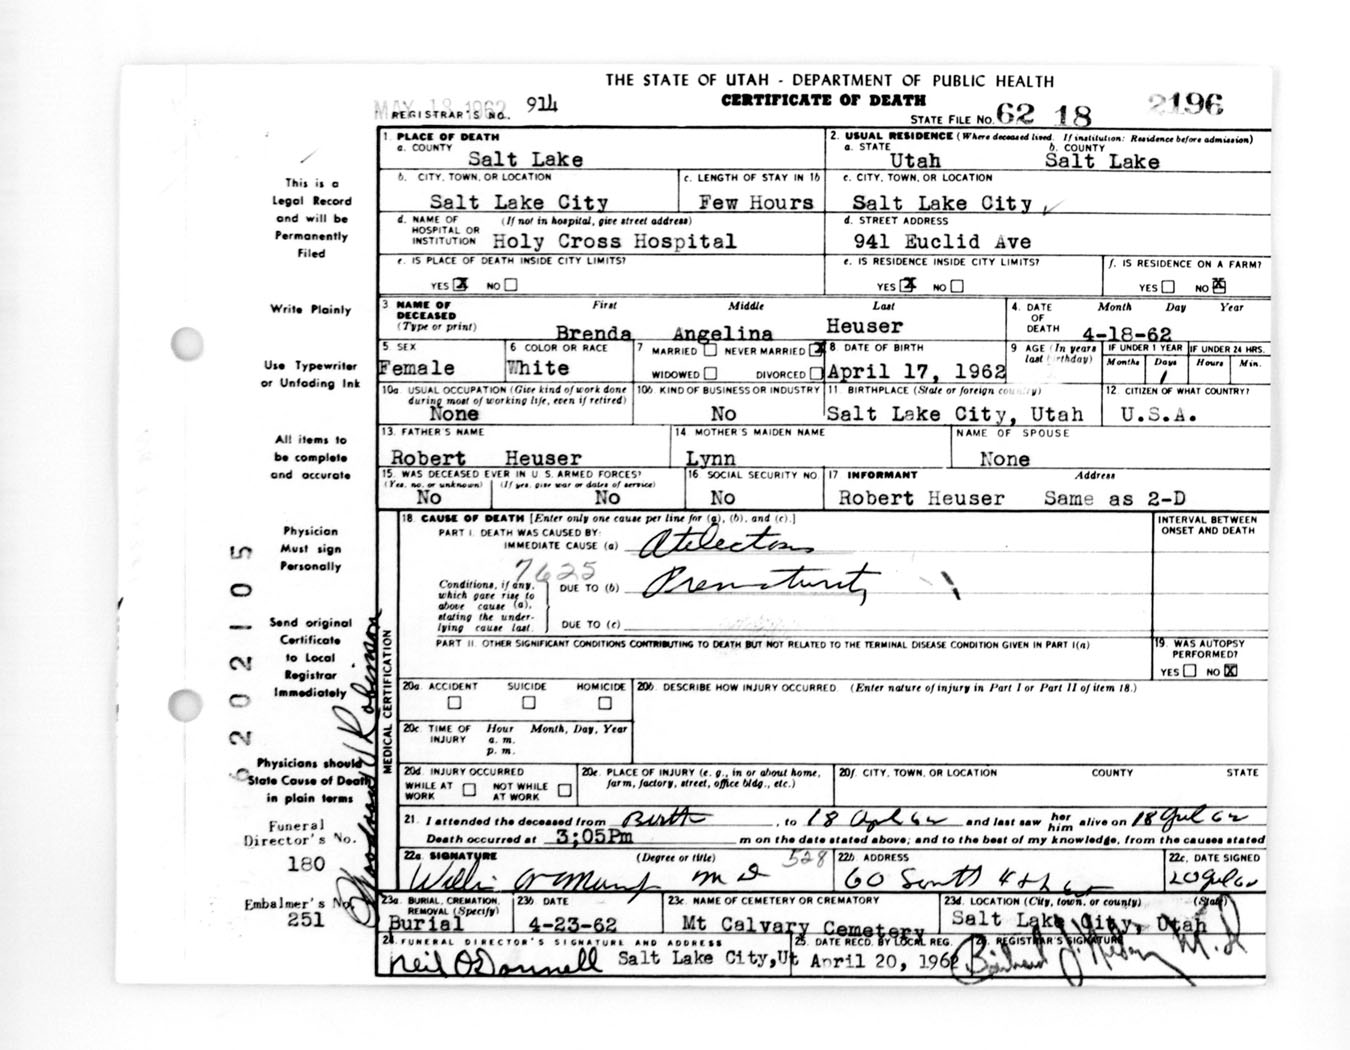 THE STATE OF UTAH - DEPARTMENT OF PUBLIC HEALTH
CERTIFICATE OF DEATH
MAY 18 1962
REGISTRAR'S NO. 914
STATE FILE NO. 62 18 2196
1. PLACE OF DEATH
a. COUNTY Salt Lake
2. USUAL RESIDENCE (Where deceased lived. If institution: Residence before admission)
a. STATE Utah b. COUNTY Salt Lake
b. CITY, TOWN, OR LOCATION Salt Lake City
c. LENGTH OF STAY IN 1b Few Hours
c. CITY, TOWN, OR LOCATION Salt Lake City
d. NAME OF HOSPITAL OR INSTITUTION (If not in hospital, give street address) Holy Cross Hospital
d. STREET ADDRESS 941 Euclid Ave
e. IS PLACE OF DEATH INSIDE CITY LIMITS? YES X NO
e. IS RESIDENCE INSIDE CITY LIMITS? YES X NO
f. IS RESIDENCE ON A FARM? YES NO X
3. NAME OF DECEASED (Type or print) First Middle Last
Brenda Angelina Heuser
4. DATE OF DEATH Month Day Year
4-18-62
5. SEX Female
6. COLOR OR RACE White
7 MARRIED NEVER MARRIED X
WIDOWED DIVORCED
8. DATE OF BIRTH April 17, 1962
9 AGE (In years last birthday)
IF UNDER 1 YEAR Months Days 1
IF UNDER 24 HRS. Hours Min.
10a. USUAL OCCUPATION (Give kind of work done during most of working life, even if retired) None
10b. KIND OF BUSINESS OR INDUSTRY No
11. BIRTHPLACE (State or foreign country) Salt Lake City, Utah
12. CITIZEN OF WHAT COUNTRY? U.S.A.
13. FATHER'S NAME Robert Heuser
14 MOTHER'S MAIDEN NAME Lynn
NAME OF SPOUSE None
15. WAS DECEASED EVER IN U. S. ARMED FORCES?
(Yes, no, or unknown) No
(If yes, give war or dates of service) No
16 SOCIAL SECURITY NO. No
17 INFORMANT Address
Robert Heuser Same as 2-D
18. CAUSE OF DEATH [Enter only one cause per line for (a), (b), and (c).]
INTERVAL BETWEEN ONSET AND DEATH
PART I. DEATH WAS CAUSED BY:
IMMEDIATE CAUSE (a) Atelectasis
7625
Conditions, if any, which gave rise to above cause (a), stating the underlying cause last.
DUE TO (b) Prematurity
DUE TO (c)
PART II. OTHER SIGNIFICANT CONDITIONS CONTRIBUTING TO DEATH BUT NOT RELATED TO THE TERMINAL DISEASE CONDITION GIVEN IN PART I(a)
19. WAS AUTOPSY PERFORMED?
YES NO X
20a. ACCIDENT SUICIDE HOMICIDE
20b. DESCRIBE HOW INJURY OCCURRED. (Enter nature of injury in Part I or Part II of item 18.)
20c. TIME OF INJURY Hour a. m. p. m. Month, Day, Year
20d. INJURY OCCURRED
WHILE AT WORK NOT WHILE AT WORK
20e. PLACE OF INJURY (e. g., in or about home, farm, factory, street, office bldg., etc.)
20f. CITY, TOWN, OR LOCATION COUNTY STATE
21. I attended the deceased from Birth, to 18 Apl 62 and last saw her him alive on 18 Apl 62
Death occurred at 3;05Pm m on the date stated above; and to the best of my knowledge, from the causes stated
22a. SIGNATURE (Degree or title) 528
M D
22b. ADDRESS 60 South 4th East
22c. DATE SIGNED 20 Apl 62
23a. BURIAL, CREMATION, REMOVAL (Specify) Burial
23b DATE 4-23-62
23c. NAME OF CEMETERY OR CREMATORY Mt Calvary Cemetery
23d. LOCATION (City, town, or county) (State)
Salt Lake City, Utah
24. FUNERAL DIRECTOR'S SIGNATURE AND ADDRESS
Neil O'Donnell Salt Lake City, Ut
25. DATE RECD. BY LOCAL REG. April 20, 1962
REGISTRAR'S SIGNATURE
M.D
This is a
Legal Record
and will be
Permanently
Filed
Write Plainly
Use Typewriter
or Unfading Ink
All items to
be complete
and accurate
Physician
Must sign
Personally
Send original
Certificate
to Local
Registrar
Immediately
Physicians should
State Cause of Death
in plain terms
Funeral
Director's No.
180
Embalmer's No.
251
MEDICAL CERTIFICATION
Robinson
6202105